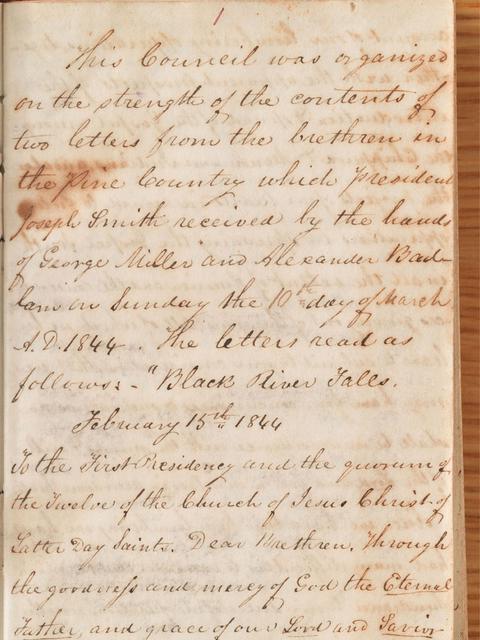 1
This Council was organized
on the strength of the contents of
two letters from the brethren in
the Pine Country which President
Joseph Smith received by the hands
of George Miller and Alexander Bad-
lam on Sunday the 10th day of March
A.D. 1844. The letters read as
follows:- "Black River Falls.
February 15th 1844
To the First Presidency and the quorum of
the Twelve of the Church of Jesus Christ of
Latter Day Saints. Dear Brethren, Through
the goodness and mercy of God the Eternal
Father, and grace of our Lord and Savior